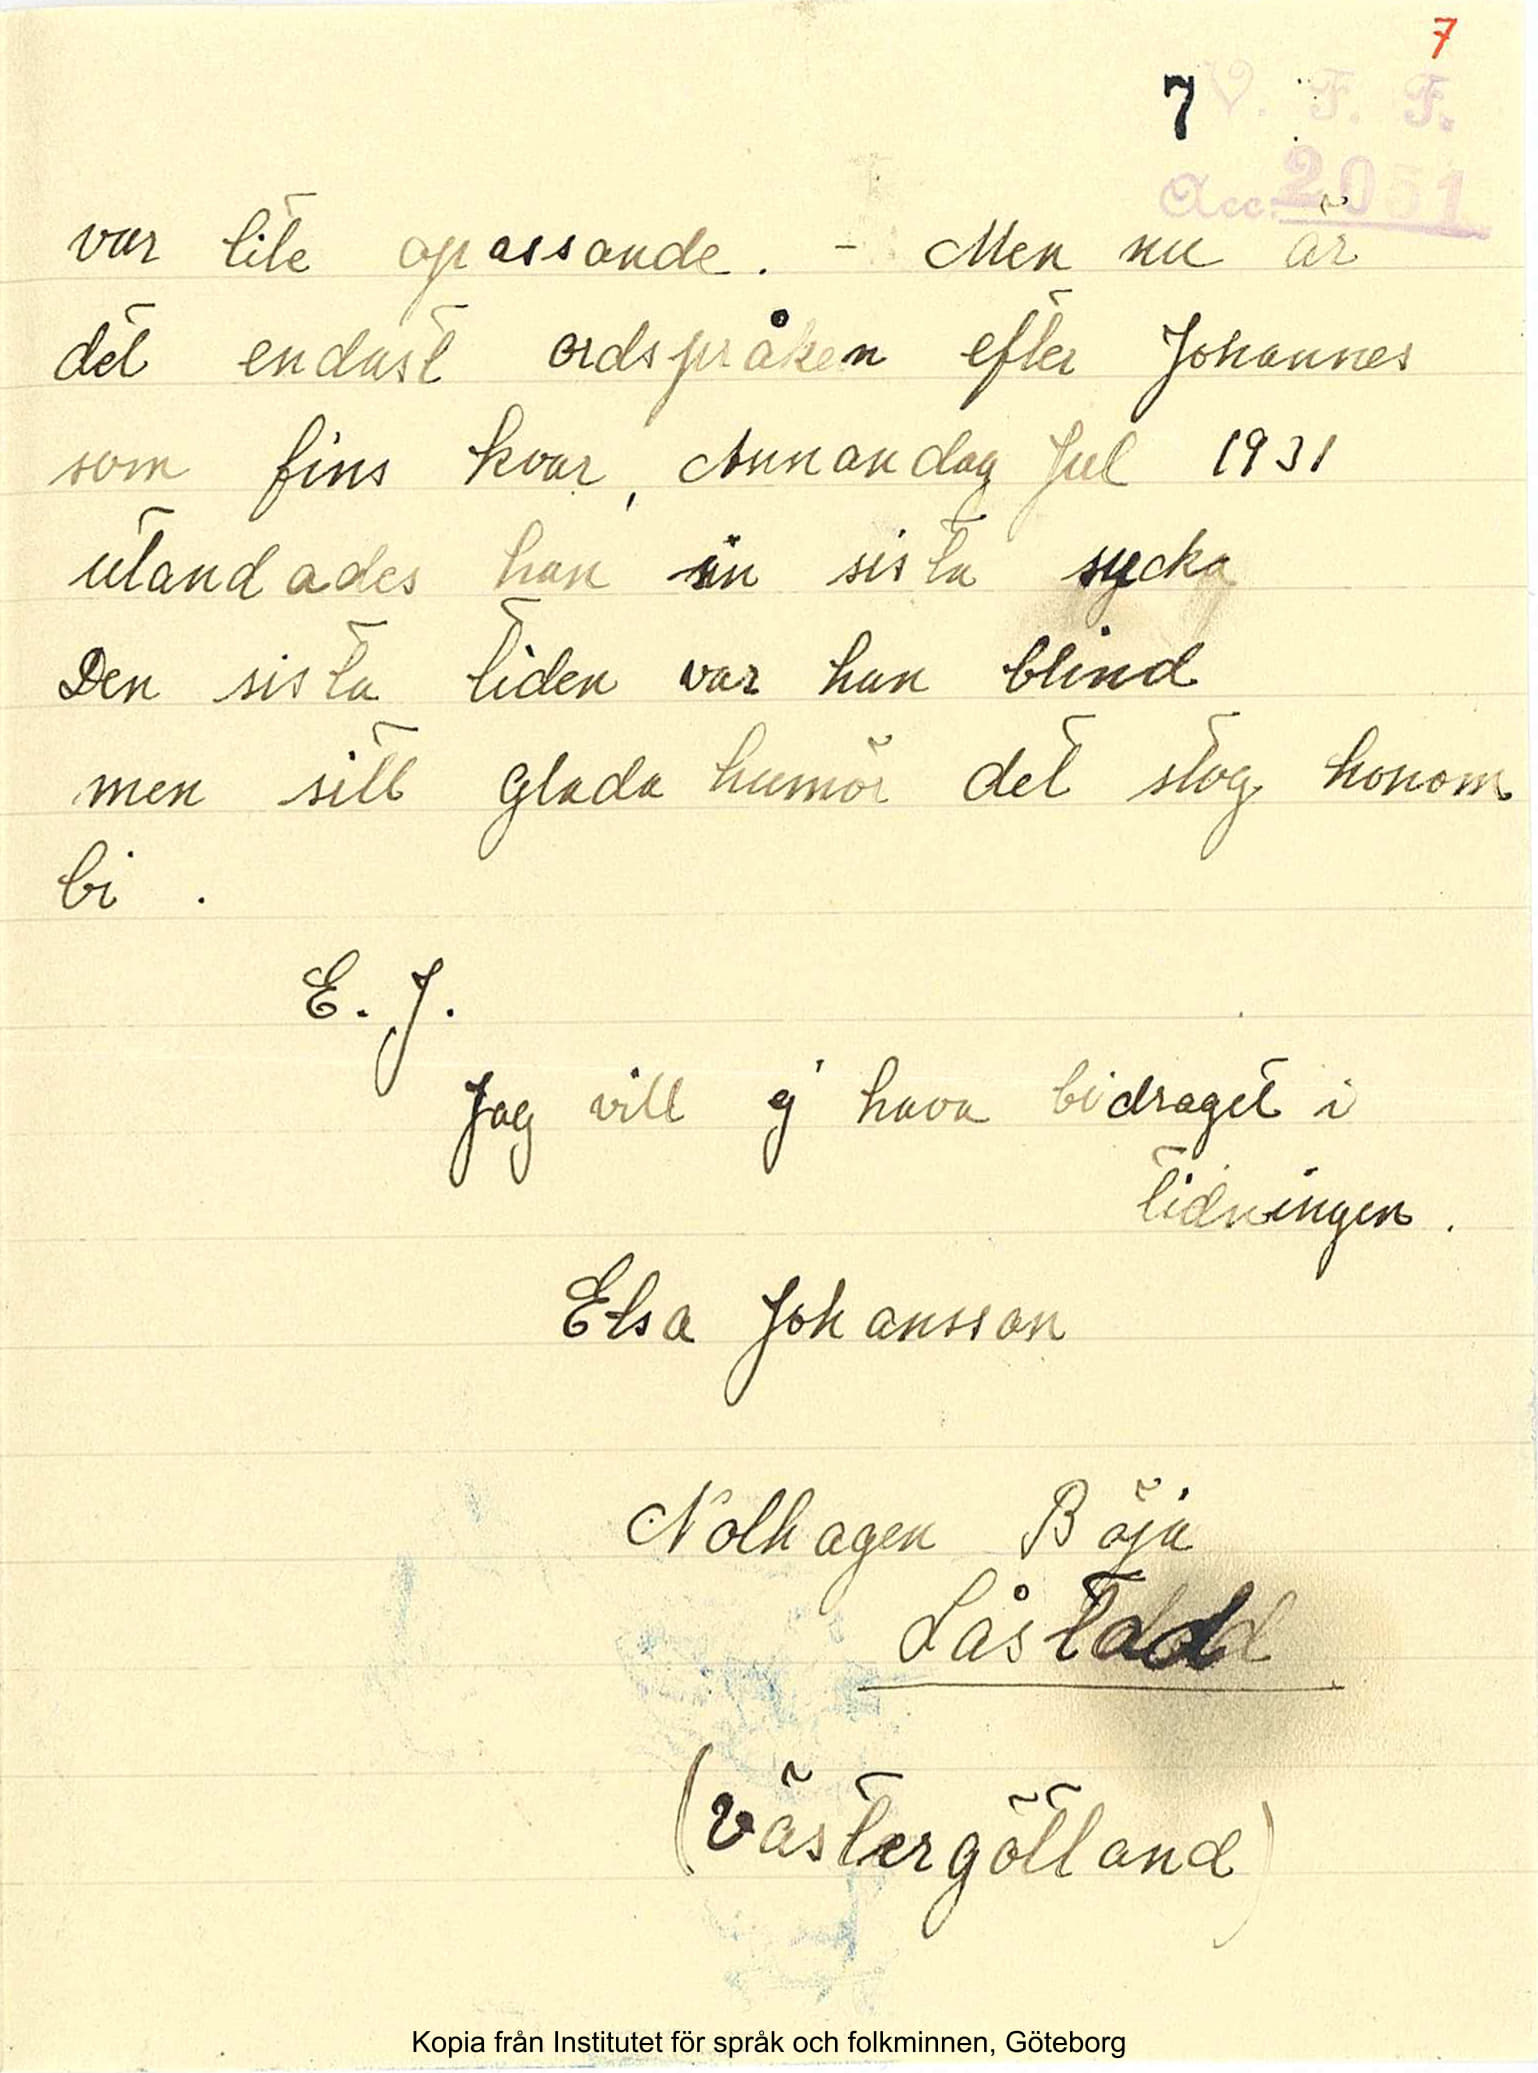 7
7 V. F. F.
Acc. 2051
var lite opassande. - Men nu är
det endast ordspråken efter Johannes
som fins kvar, Annandag Jul 1931
utandades han sin sista sycka
Den sista tiden var han blind
men sitt glada humör det stog honom
bi .
E. J.
Jag vill ej hava bidraget i
tidningen .
Elsa Johansson
Nolhagen Böja
Låstad
(Västergötland)
Kopia från Institutet för språk och folkminnen, Göteborg